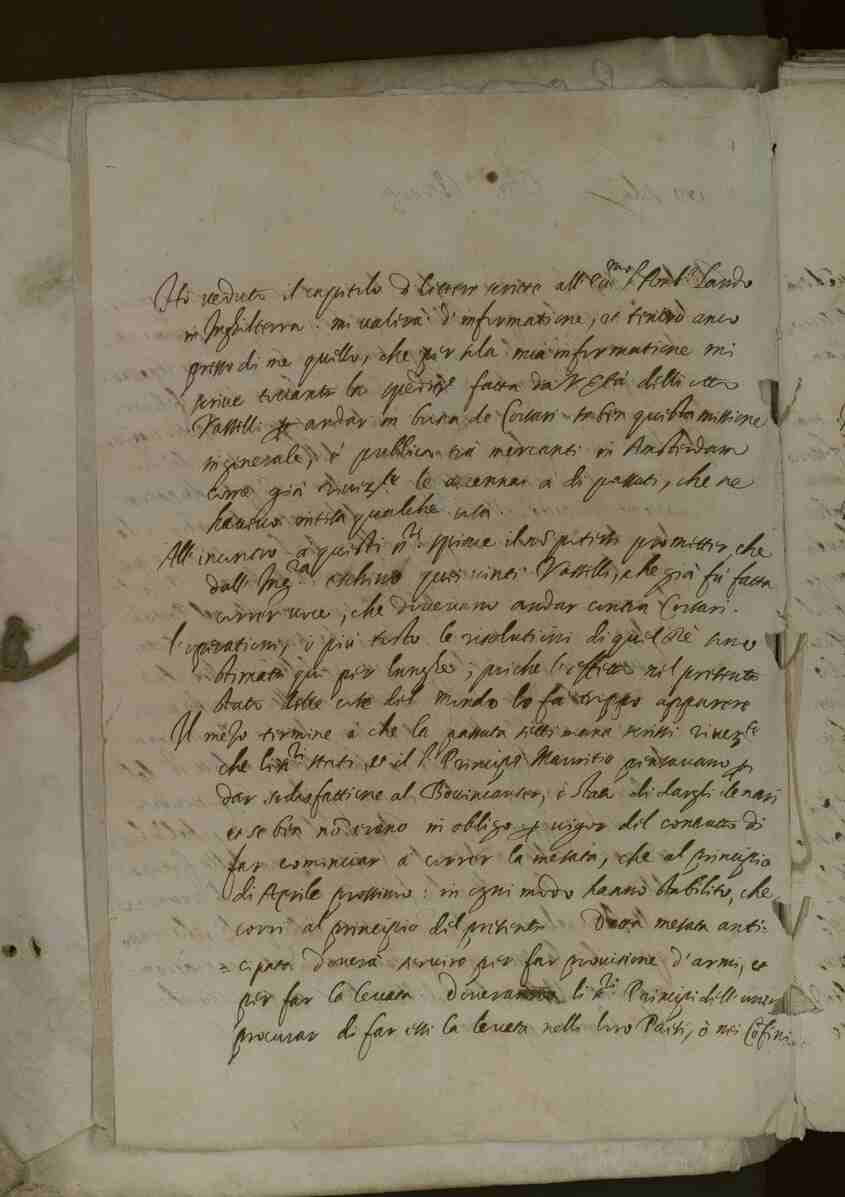 Hò veduto il capitolo di lettere scritte all' Ecc.mo s.r Amb.r Lando
in Inghilterra: mi valirà d'informatione, et tenirò anco
presso di me quello, che per sola mia informatione mi
scrive toccante la speditione fatta da V. S.tà delli otto
Vasselli p andar in busca de Corsari se ben questa missione
in generale, è publica trà mercanti in Amsterdam
come già riverent.te le accennai à di passati, che ne
havevo intesa qualche cosa.
All' incontro à questi s.ri spiace il nõ potersi prometter, che
dall' Ing.ra eschino quei vinti Vasselli, che già fù fatta
correr voce, che dovevano andar contra Corsari.
l'operationi, ò più tosto le resolutioni di quel Rè sono
stimate qui per lunghe; poiche l'effetto nel presente
stato delle cose del mondo lo fà troppo apparere
Il mezo termine à che la passata settimana scrissi river.te
che li s.ri Stati, et il s.r Principe Mauritio pensavano p
dar sodisfattione al Bovincauser, è stato di dargli denari
et se ben nõ erano in obligo p vigor del contratto di
far cominciar à correr la mesata, che al principio
di Aprile prossimo: in ogni modo hanno stabilito, che
corri al principio del presente. Detta mesata anti-
= cipata doverà servire per far provisione d'armi, et
per far la levata. Doveranno li s.ri Principi dell' unione
procurar di far essi la levata nelli loro Paesi, ò nei Cõfini